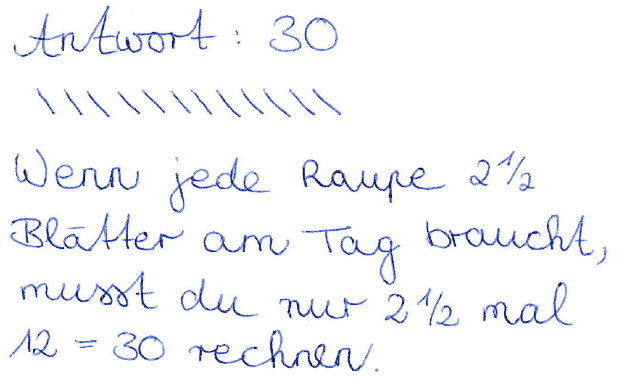 Antwort: 30
\\\\\\\\\\\\
Wenn jede Raupe 2 1/2
Blätter am Tag braucht,
musst du nur 2 1/2 mal
12 = 30 rechnen.